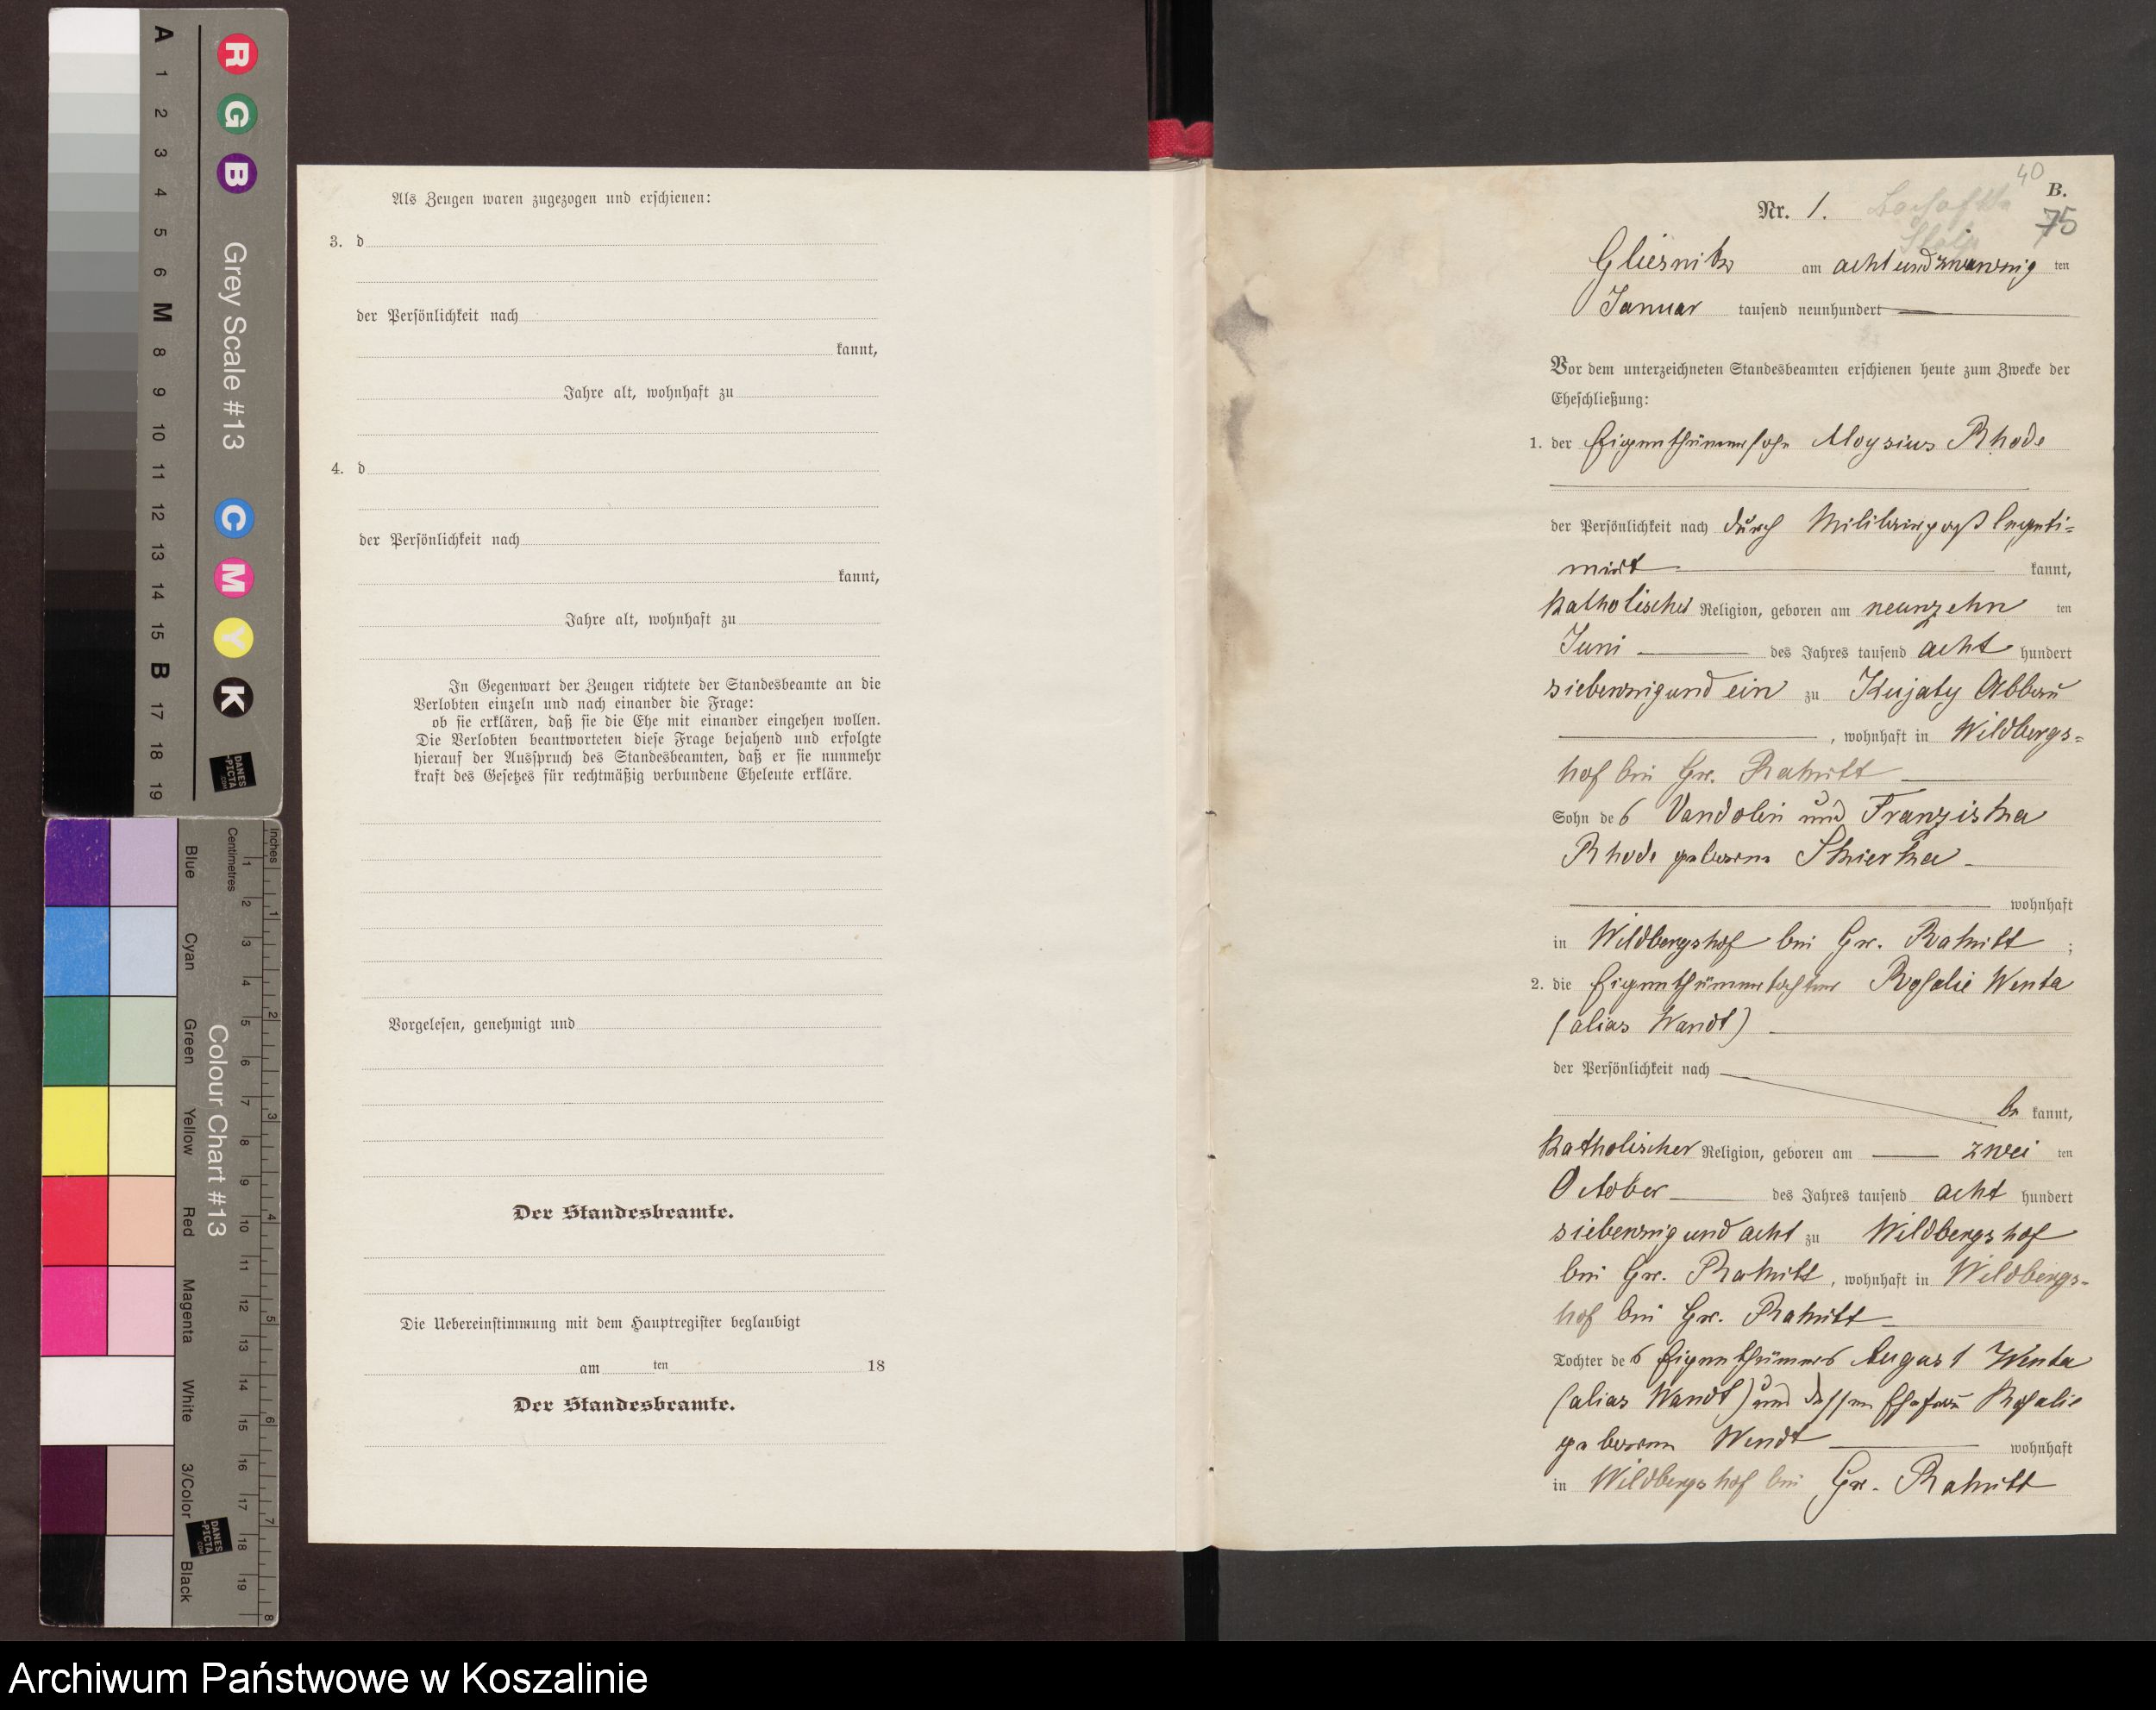 A 1 2 3 4 5 6 M 8 9 10 11 12 13 14 15 B 17 18 19
R G B
Grey Scale #13
C M Y K
DANES
-PICTA
.COM
Inches
Centimetres
Blue Cyan Green Yellow Red Magenta White 3/Color Black
Colour Chart #13
1 2 3 4 5 6 7 8 9 10 11 12 13 14 15 16 17 18 19
1 2 3 4 5 6 7 8
DANES
-PICTA
.COM
Als Zeugen waren zugezogen und erschienen:
3. d
der Persönlichkeit nach
kannt,
Jahre alt, wohnhaft zu
4. d
der Persönlichkeit nach
kannt,
Jahre alt, wohnhaft zu
In Gegenwart der Zeugen richtete der Standesbeamte an die
Verlobten einzeln und nach einander die Frage:
ob sie erklären, daß sie die Ehe mit einander eingehen wollen.
Die Verlobten beantworteten diese Frage bejahend und erfolgte
hierauf der Ausspruch des Standesbeamten, daß er sie nunmehr
kraft des Gesetzes für rechtmäßig verbundene Eheleute erkläre.
Vorgelesen, genehmigt und
Der Standesbeamte.
Die Uebereinstimmung mit dem Hauptregister beglaubigt
am ten 18
Der Standesbeamte.
40
B.
Nr. 1.
75
Gliesnitz am achtundzwanzig ten
Januar tausend neunhundert
Vor dem unterzeichneten Standesbeamten erschienen heute zum Zwecke der
Eheschließung:
1. der Eigenthümersohn Aloysius Rhode
der Persönlichkeit nach durch Militairpaß legiti=
mirt kannt,
katholischer Religion, geboren am neunzehn ten
Juni des Jahres tausend acht hundert
siebenzigundein zu Kujaty Abbau
, wohnhaft in Wildbergs=
hof bei Gr. Rakitt
Sohn des Vandolin und Franziska
Rhode geborene Skierka
wohnhaft
in Wildbergshof bei Gr. Rakitt ;
2. die Eigenthümertochter Rosalie Wenta
(alias Wandt)
der Persönlichkeit nach
be kannt,
katholischer Religion, geboren am zwei ten
October des Jahres tausend acht hundert
siebenzigundacht zu Wildbergshof
bei Gr. Rakitt , wohnhaft in Wildbergs=
hof bei Gr. Rakitt
Tochter des Eigenthümers August Wenta
(alias Wandt) und dessen Ehefrau Rosalie
geborene Wendt wohnhaft
in Wildbergshof bei Gr. Rakitt
Archiwum Państwowe w Koszalinie